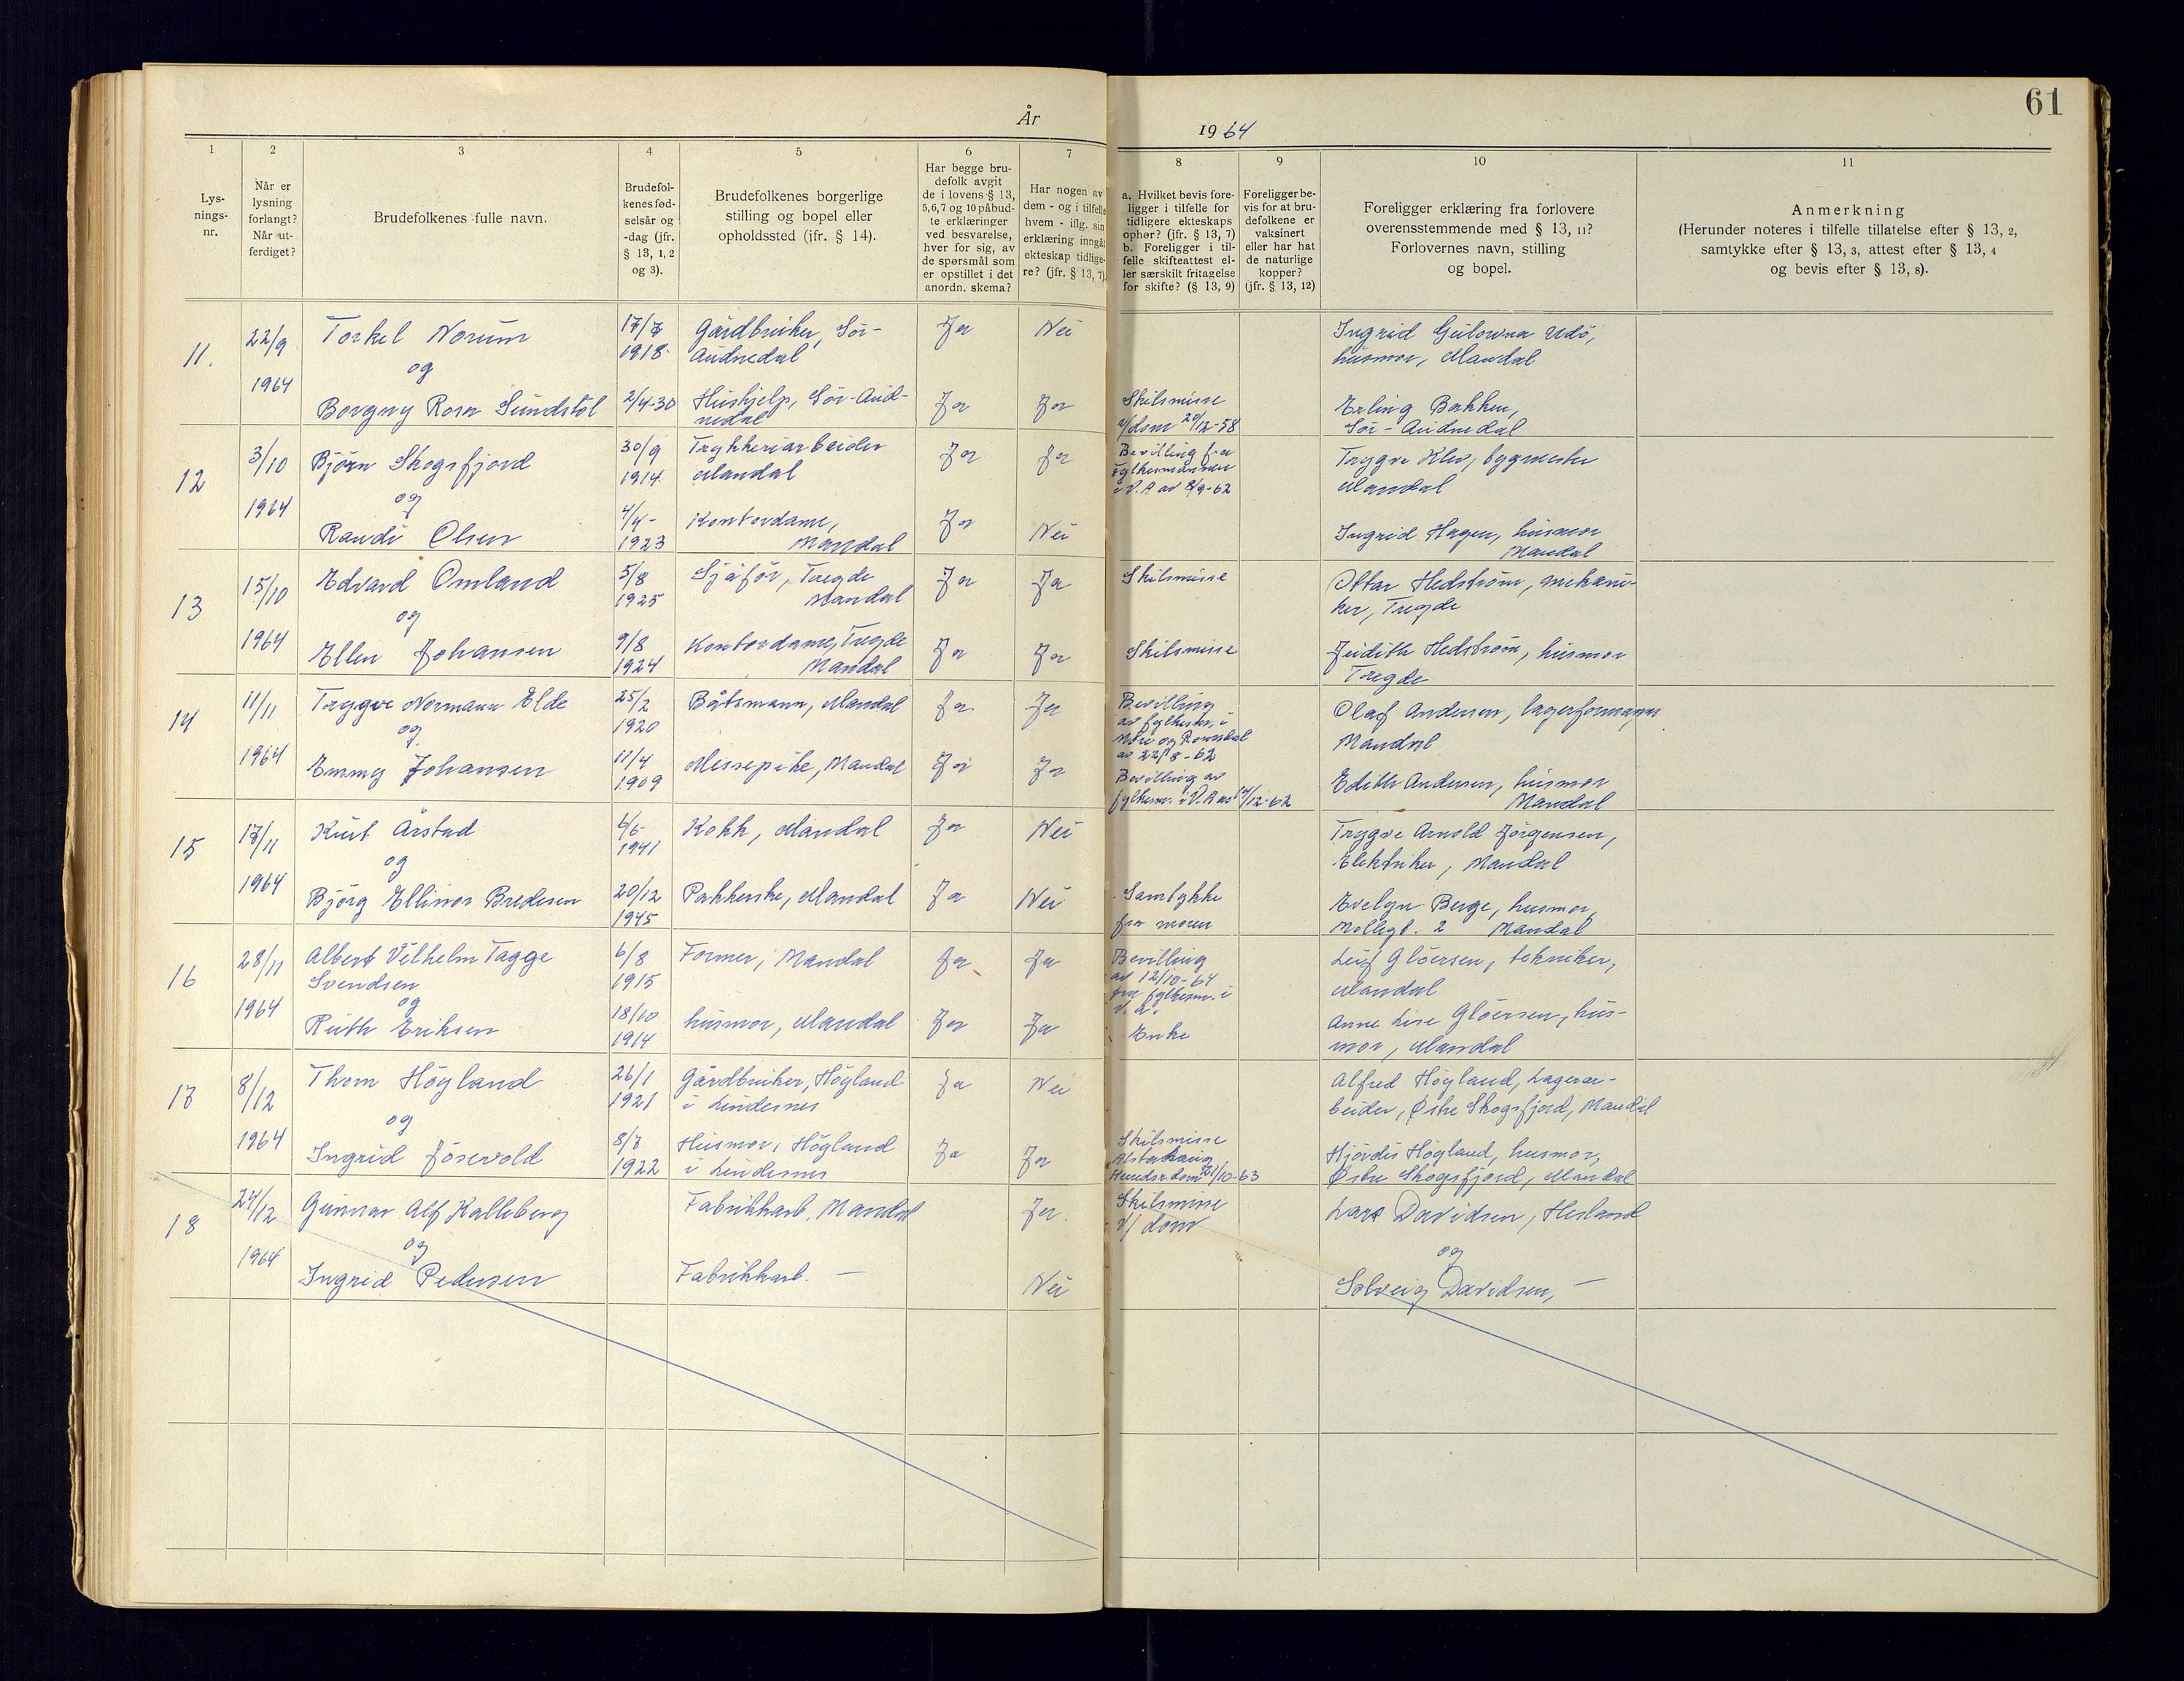 År
1964
61
1
2
3
4
5
6
7
8
9
10
11
Lys-
nings-
nr.
Når er
lysning
forlangt?
Når ut-
ferdiget?
Brudefolkenes fulle navn.
Brudefol-
kenes fød-
selsår og
-dag (jfr.
§ 13, 1, 2
og 3).
Brudefolkenes borgerlige
stilling og bopel eller
opholdssted (jfr. § 14).
Har begge bru-
defolk avgit
de i lovens § 13,
5,6,7 og 10 påbud-
te erklæringer
ved besvarelse,
hver for sig, av
de spørsmål som
er opstillet i det
anordn. skema?
Har nogen av
dem - og i tilfelle
hvem - iflg. sin
erklæring inngåt
ekteskap tidlige-
re? (jfr. § 13, 7)
a. Hvilket bevis fore-
ligger i tilfelle for
tidligere ekteskaps
ophør? (jfr. § 13, 7)
b. Foreligger i til-
felle skifteattest el-
ler særskilt fritagelse
for skifte? (§ 13, 9)
Foreligger be-
vis for at bru-
defolkene er
vaksinert
eller har hat
de naturlige
kopper?
(jfr. § 13, 12)
Foreligger erklæring fra forlovere
overensstemmende med § 13, 11?
Forlovernes navn, stilling
og bopel.
Anmerkning
(Herunder noteres i tilfelle tillatelse efter § 13, 2,
samtykke efter § 13, 3, attest efter § 13, 4
og bevis efter § 13, 8).
11.
22/9
1964
Torkel Norum
og
Borgny Rosa Sundstøl
17/7
1918
2/4-30
Gårdbruker, Sør-
Audnedal
Hushjelp, Sør-Aud-
nedal
Ja
Ja
Nei
Ja
Skilsmisse
v/dom 29/12-58
Ingrid Udø,
husmor, Mandal
Erling Bakken,
Sør-Audnedal
12
3/10
1964
Bjørn Skogsfjord
og
Randi Olsen
30/9
1914
4/4-
1923
Trykkeriarbeider
Mandal
Kontordame,
Mandal
Ja
Ja
Ja
Nei
Bevilling fra
fylkesmannen
i V.A av 8/9-62
Trygve Klev, bygmester
Mandal
Ingrid Hagen, husmor
Mandal
13
15/10
1964
Edvard Omland
og
Ellen Johansen
5/8
1925
9/8
1924
Sjåfør, Tregde
Mandal
Kontordame, Tregde
Mandal
Ja
Ja
Ja
Ja
Skilsmisse
Skilsmisse
Ottar Hedstrøm, mekani-
ker, Tregde
Judith Hedstrøm, husmor
Tregde
14
11/11
1964
Trygve Normann Elde
og
Emmy Johansen
25/2
1920
11/4
1909
Båtsmann, Mandal
Messepike, Mandal
Ja
Ja
Ja
Ja
Bevilling
av fylkesm. i
Møre og Romsdal
av 22/8-62
Bevilling av
fylkesm. i V.A av 14/12-62
Olaf Andersen, lagerformann
Mandal
Edith Andersen, husmor
Mandal
15
17/11
1964
Kurt Årstad
og
Bjørg Ellinor Bredesen
4/5-
1941
20/12
1945
Kokk, Mandal
Pakkerske, Mandal
Ja
Ja
Nei
Nei
Samtykke
fra moren
Trygve Arnold Jørgensen,
Elektriker, Mandal
Evelyn Berge, husmor,
Mollegt. 2 Mandal
16
28/11
1964
Albert Vilhelm Tagge
Svendsen
og
Ruth Eriksen
6/8
1915
18/10
1914
Former, Mandal
husmor, Mandal
Ja
Ja
Ja
Ja
Bevilling
av 12/10-64
fra fylkesm. i
V.A.
Enke
Leif Gløersen, tekniker,
Mandal
Anne Lise Gløersen, hus-
mor, Mandal
17
8/12
1964
Thom Høyland
og
Ingrid Jøsevold
26/1
1921
8/7
1922
Gårdbruker, Høyland
i Lindesnes
Husmor, Høyland
i Lindesnes
Ja
Ja
Nei
Ja
Skilsmisse
Alstahaug
Herredsdom 21/10-63
Alfred Høyland, Lagerar-
beider, Østre Skogsfjord, Mandal
Hjørdis Høyland, husmor,
Østre Skogsfjord, Mandal
18
24/12
1964
Gunnar Alf Kalleberg
og
Ingrid Pedersen
Fabrikkarb, Mandal
Fabrikkarb. —
Ja.
Nei
Skilsmisse
v/ dom
Lars Davidsen, Hesland
og
Solveig Davidsen, —